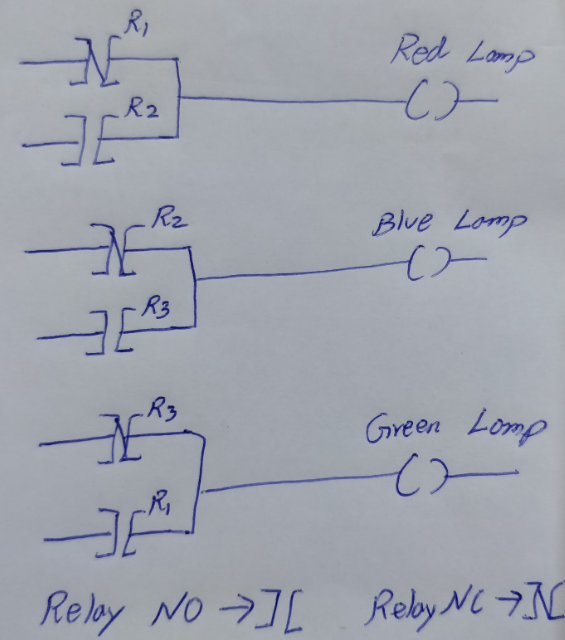 R1
Red Lamp
R2
R2
Blue Lamp
R3
R3
Green Lamp
R1
Relay NO → ][ Relay NC → ]N[